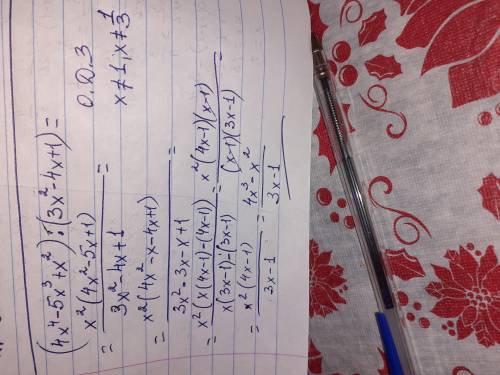 (4x⁴-5x³+x²):(3x²-4x+1)=
= x²(4x²-5x+1) / 3x²-4x+1 =
О.Д.З
x≠1; x≠1/3
= x²(4x²-x-4x+1) / 3x²-3x-x+1 =
= x²(x(4x-1)-(4x-1)) / x(3x-1)-(3x-1) = x²(4x-1)(x-1) / (x-1)(3x-1) =
= x²(4x-1) / 3x-1 = 4x³-x² / 3x-1